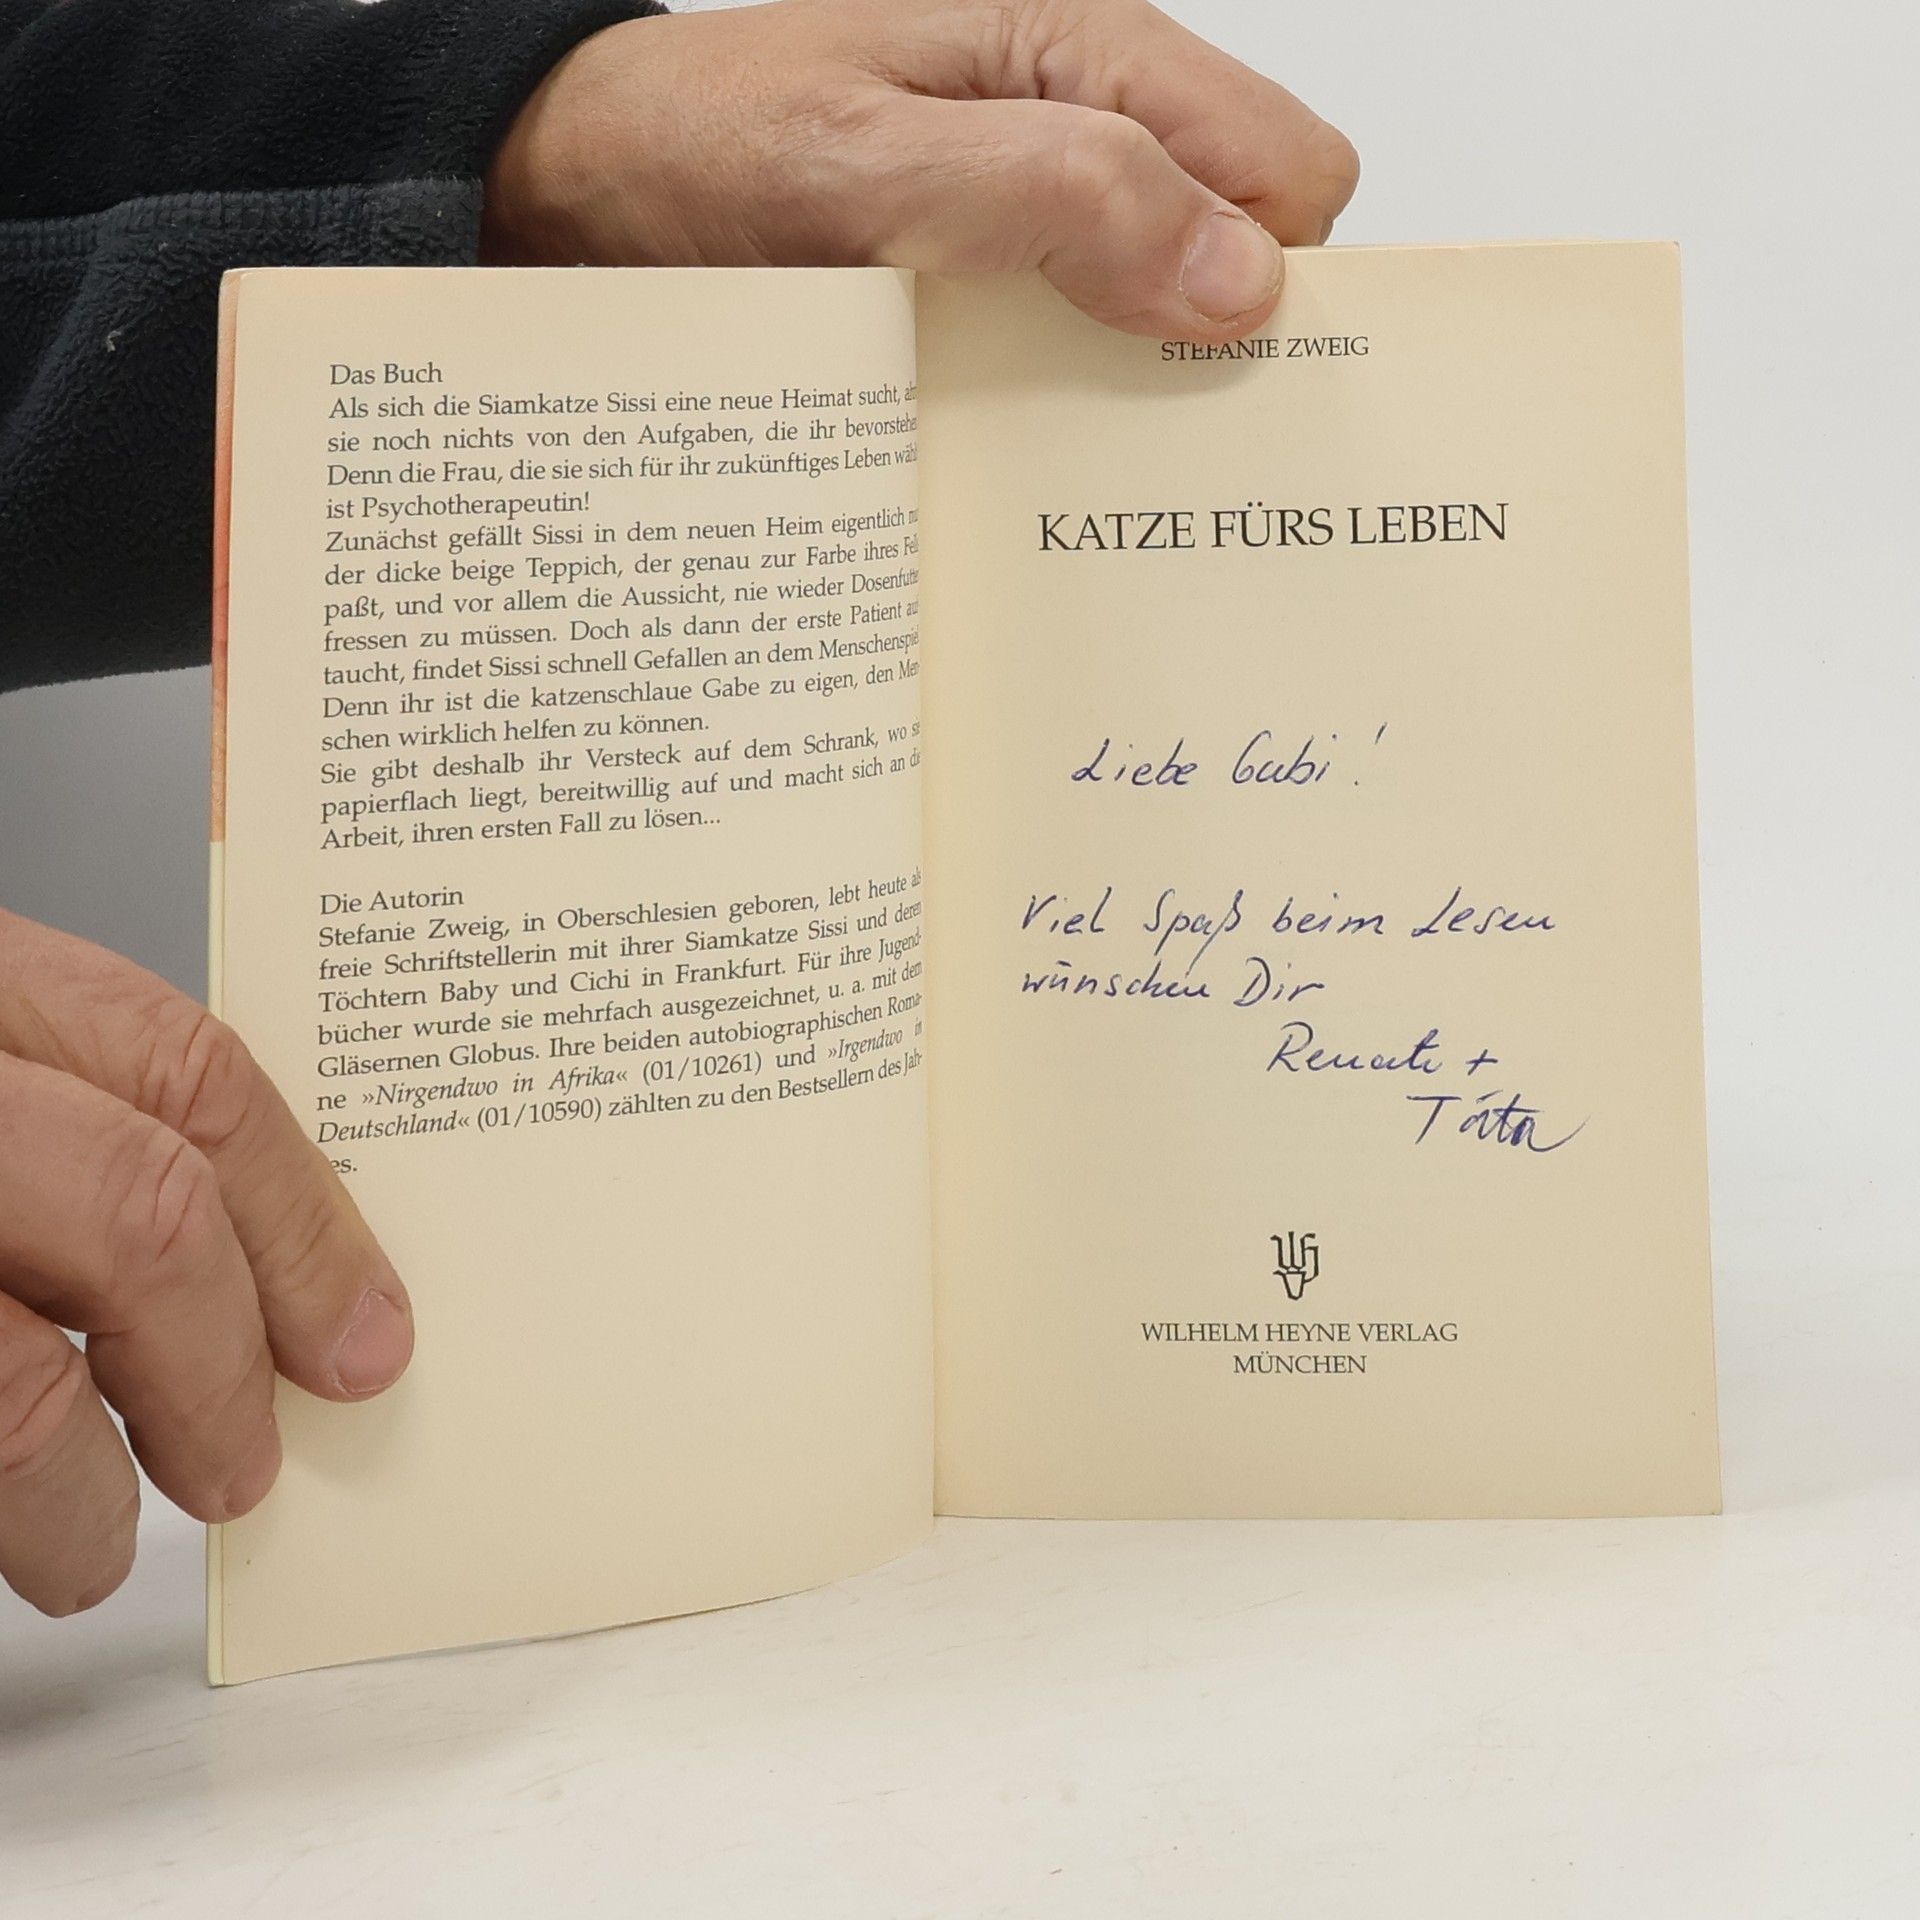 Das Buch
Als sich die Siamkatze Sissi eine neue Heimat sucht,
sie noch nichts von den Aufgaben, die ihr bevorstehen
Denn die Frau, die sie sich für ihr zukünftiges Leben wählt
ist Psychotherapeutin!
Zunächst gefällt Sissi in dem neuen Heim eigentlich
der dicke beige Teppich, der genau zur Farbe ihres Fells
paßt, und vor allem die Aussicht, nie wieder Dosenfutter
fressen zu müssen. Doch als dann der erste Patient auf
taucht, findet Sissi schnell Gefallen an dem Menschenspiel
Denn ihr ist die katzenschlaue Gabe zu eigen, den Men-
schen wirklich helfen zu können.
Sie gibt deshalb ihr Versteck auf dem Schrank, wo sie
papierflach liegt, bereitwillig auf und macht sich an die
Arbeit, ihren ersten Fall zu lösen...
Die Autorin
Stefanie Zweig, in Oberschlesien geboren, lebt heute als
freie Schriftstellerin mit ihrer Siamkatze Sissi und deren
Töchtern Baby und Cichi in Frankfurt. Für ihre Jugend-
bücher wurde sie mehrfach ausgezeichnet, u. a. mit dem
Gläsernen Globus. Ihre beiden autobiographischen Roma-
ne »Nirgendwo in Afrika« (01/10261) und »Irgendwo in
Deutschland« (01/10590) zählten zu den Bestsellern des Jah-
es.
STEFANIE ZWEIG
KATZE FÜRS LEBEN
Liebe Gabi!
Viel Spaß beim Lesen
wünschen Dir
Renate +
Táta
WILHELM HEYNE VERLAG
MÜNCHEN